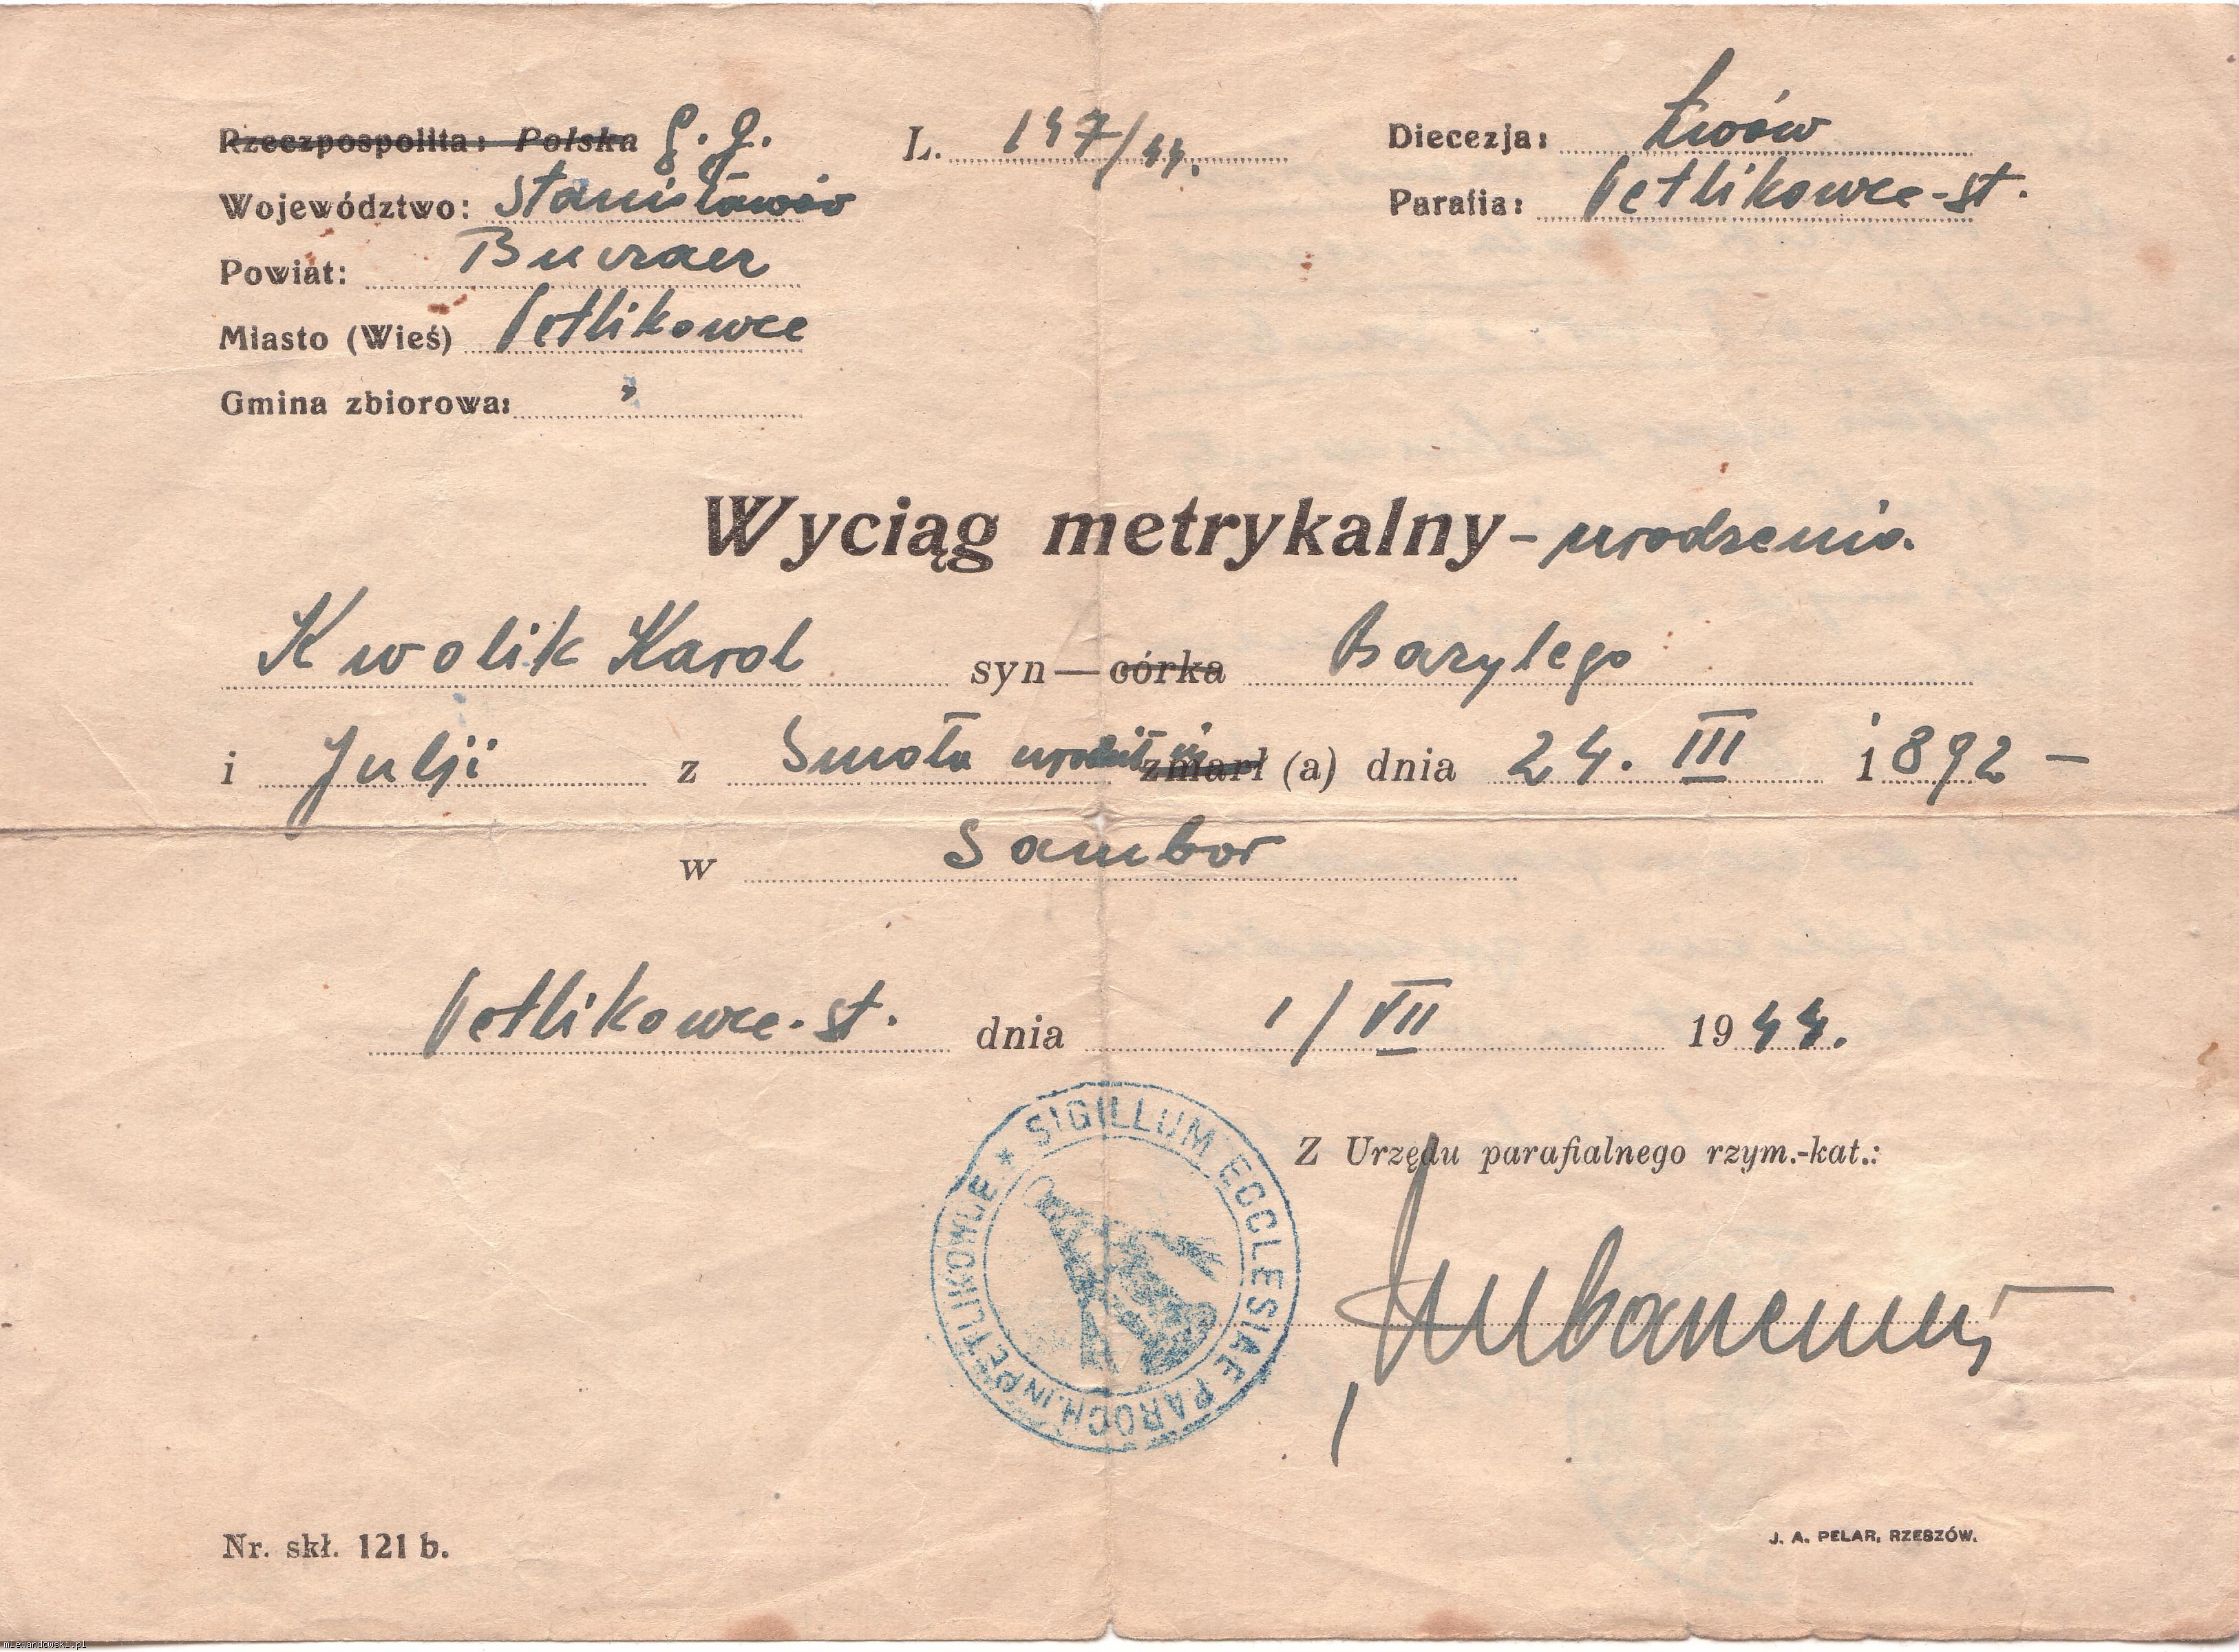 Rzeczpospolita: Polska G. G.
L. 147/44.
Diecezja: Lwów
Województwo: Stanisławów
Parafia: Petlikowce-st.
Powiat: Buczacz
Miasto (Wieś) Petlikowce
Gmina zbiorowa: "
Wyciąg metrykalny - urodzenia.
Kwolik Karol syn — córka Bazylego
i Julji z Smoła urodził się zmarł (a) dnia 24. III 1892 —
w Sambor
Petlikowce-st. dnia 1/VII 1944.
SIGILLUM ECCLESIAE PAROCH. IN PETLIKOWCE *
Z Urzędu parafialnego rzym.-kat.:
Nr. skł. 121 b.
J. A. PELAR, RZESZÓW.
mlewandowski.pl